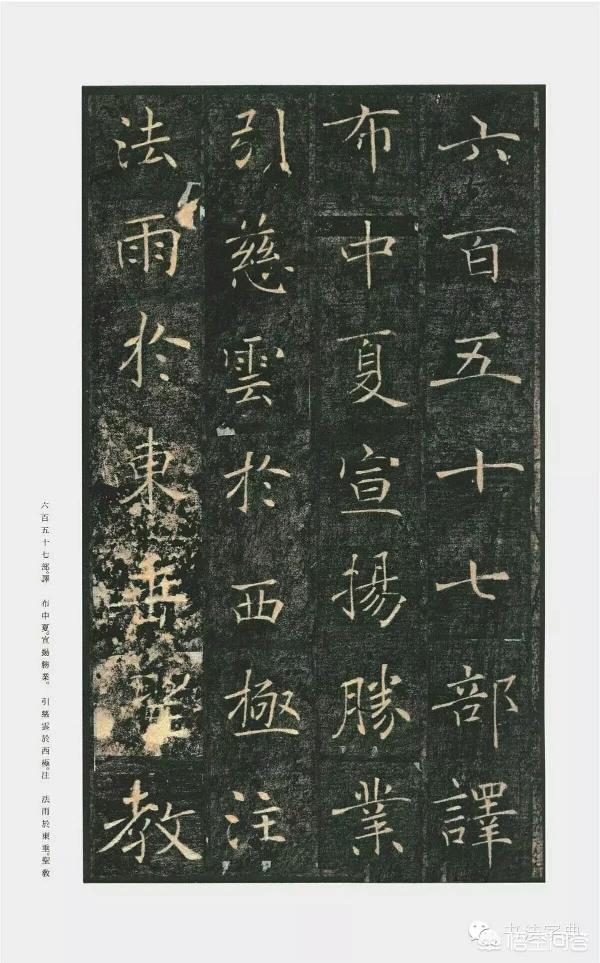 六百五十七部譯
布中夏宣揚勝業
引慈雲於西極注
法雨於東垂聖教
六百五十七部。譯 布中夏。宣揚勝業。 引慈雲於西極。注 法雨於東垂。聖教
书法字典
悟空问答